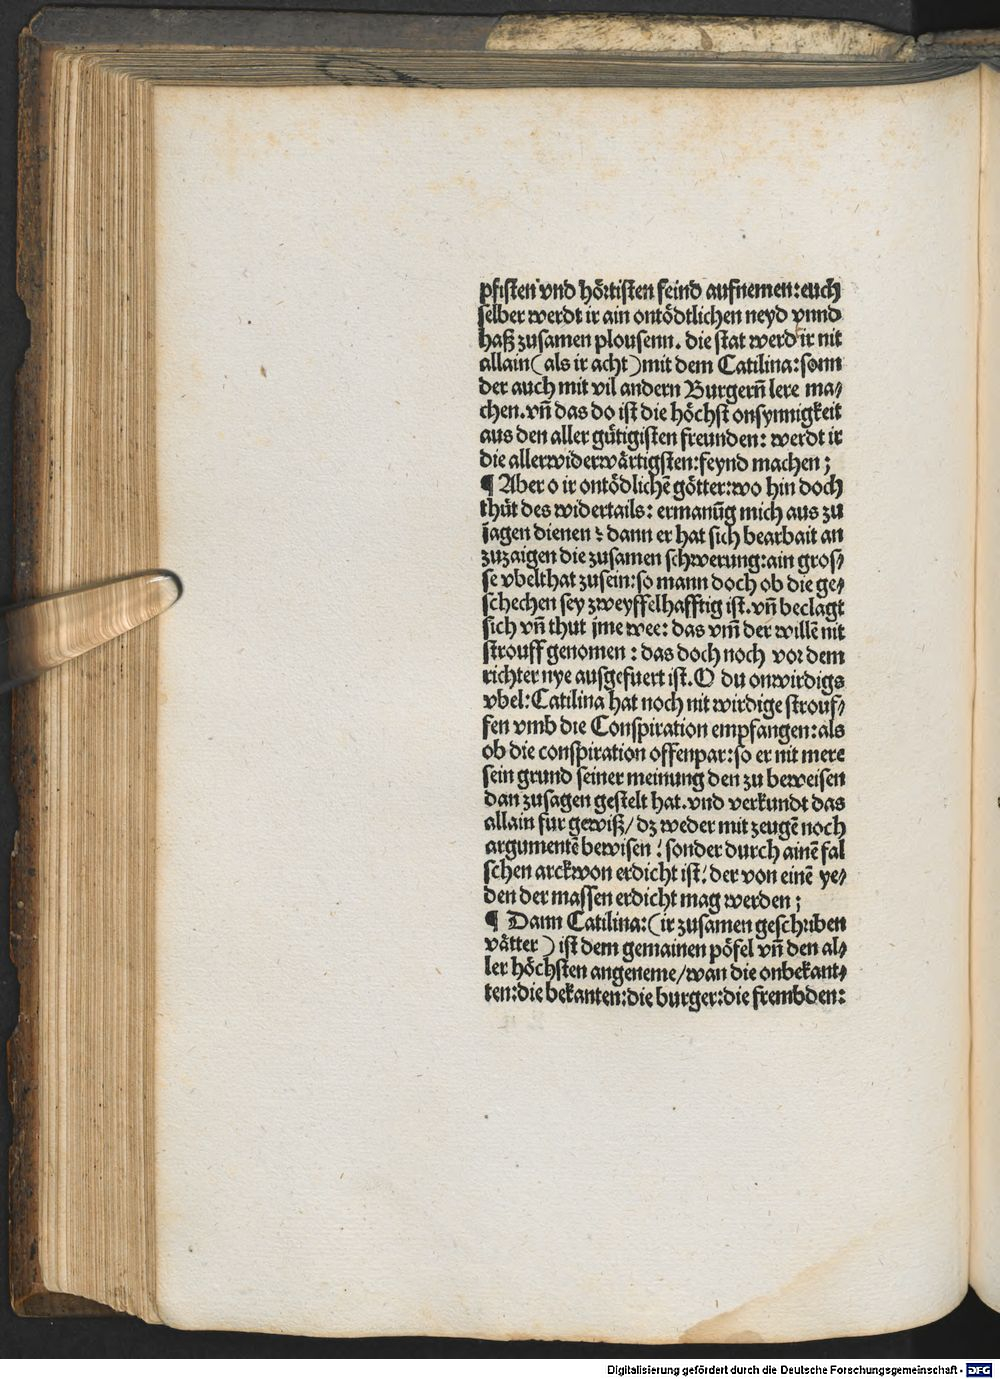 pfisten vnd hörtisten feind aufnemen: euch
selber werdt ir ain ontödtlichen neyd vnnd
haß zusamen plousenn. die stat werd ir nit
allain (als ir acht) mit dem Catilina: sonn
der auch mit vil andern Burgern̄ lere ma⸗
chen. vn̄ das do ist die höchst onsynnigkeit
aus den aller gütigisten freunden: werdt ir
die allerwiderwärtigsten: feynd machen;
¶ Aber o ir ontödlichē götter: wo hin doch
thůt des widertails: ermanūg mich aus zu
iagen dienen? dann er hat sich bearbait an
zuzaigen die zusamen schwerung: ain gros⸗
se vbelthat zusein: so mann doch ob die ge⸗
schechen sey zweyffelhafftig ist. vn̄ beclagt
sich vn̄ thut jme wee: das vm̄ der willē nit
strouff genomen: das doch noch vor dem
richter nye ausgefuert ist. O du onwirdigs
vbel: Catilina hat noch nit wirdige strouf⸗
fen vmb die Conspiration empfangen: als
ob die conspiration offenpar: so er nit mere
sein grund seiner meinung den zu beweisen
dan zusagen gestelt hat. vnd verkundt das
allain fur gewiß/ dz weder mit zeugē noch
argumentē bewisen: sonder durch ainē fal
schen arckwon erdicht ist: der von einē ye⸗
den der massen erdicht mag werden;
¶ Dann Catilina: (ir zusamen geschriben
vätter) ist dem gemainen pöfel vn̄ den al⸗
ler höchsten angeneme/ wan die onbekant⸗
ten: die bekanten: die burger: die frembden:
Digitalisierung gefördert durch die Deutsche Forschungsgemeinschaft - DFG